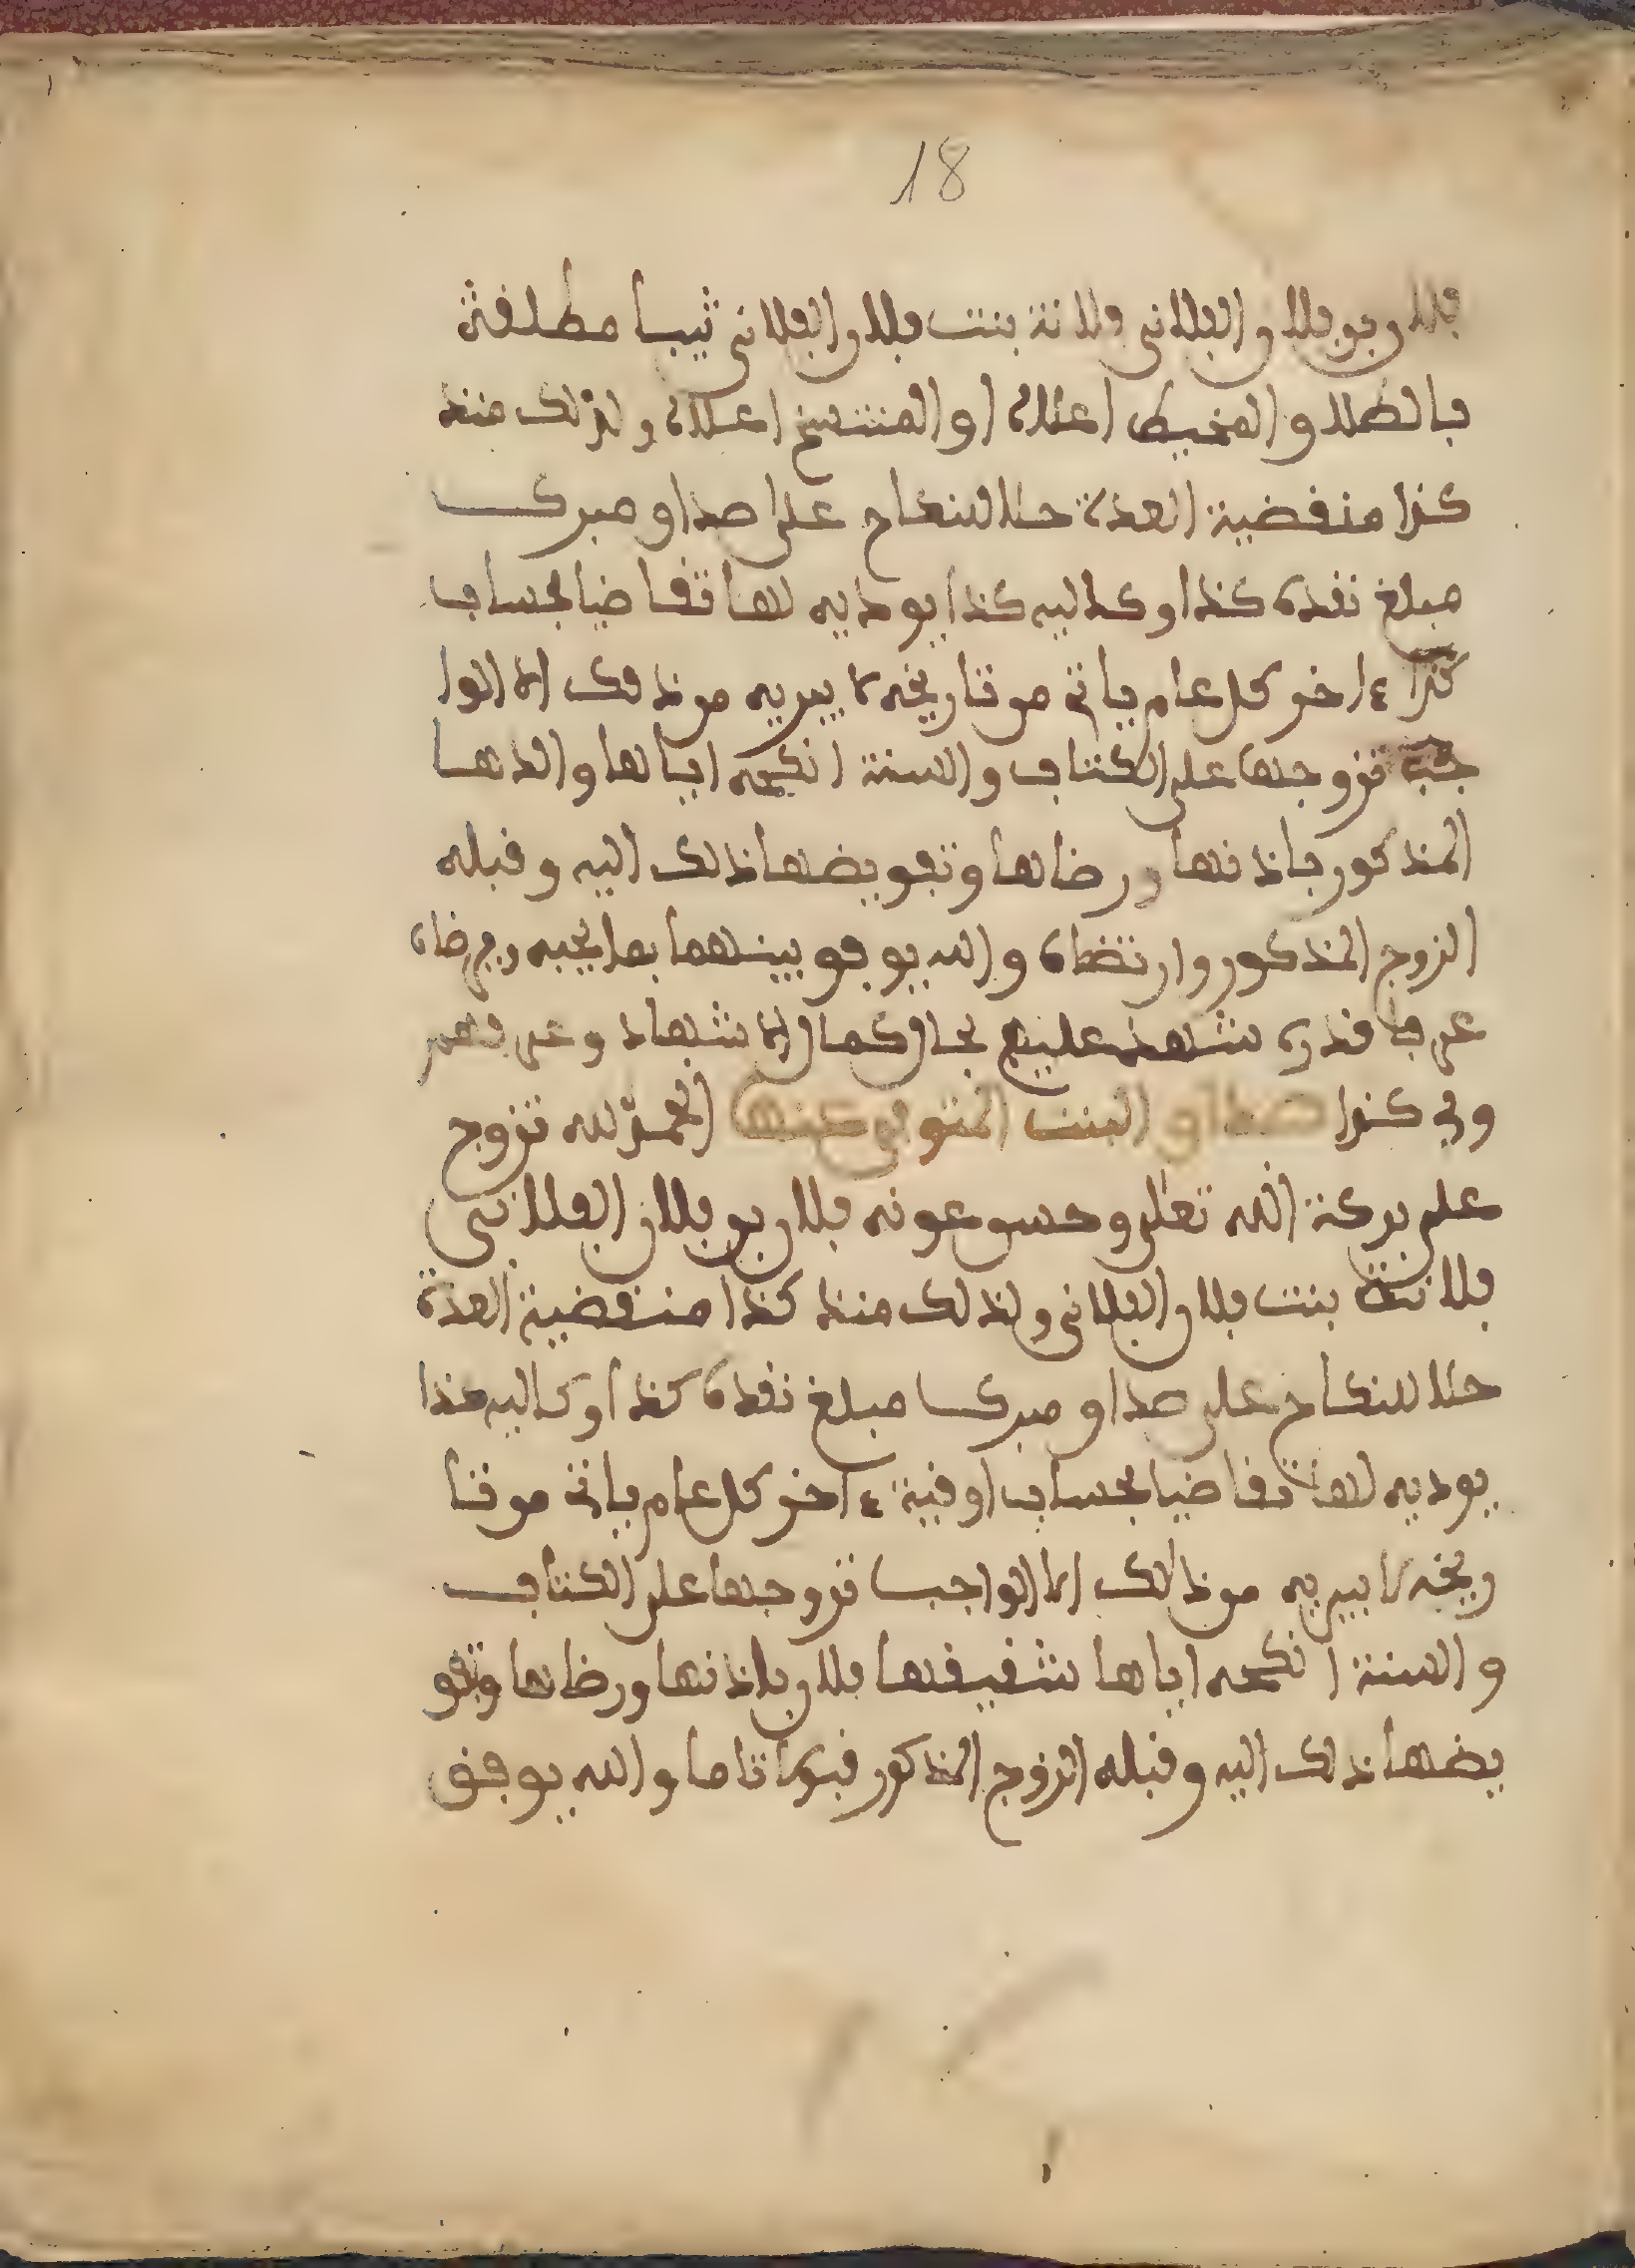 18
فلان بن فلان الفلاني فلانة بنت فلان الفلاني ثيبا مطلقة
بالطلاق المخيط اعلاه او المنتسخ اعلاه ولذلك منذ
كذا منقضية العدة حلا للنكاح على صداق مبرك
مبلغ نقده كذا وكاليه كذا يوديه لها تقاضيا بحساب
كذا ء اخر كل عام ياتي من تاريخه لا يبريه من ذلك الا الوا
جب تزوجها على الكتاب والسنة انكحه اياها والدها
المذكور باذنها ورضاها وتفويضها ذلك اليه وقبله
الزوج المذكور وارتضاه والله يوفق بينهما بما يحبه ويرضاه
عرفا قدره شهد عليهم بحال كمال الاشهاد وعرفهم
وفي كذا صداق البنت المتوفى عنها الحمد لله تزوج
على بركة الله تعلى وحسن عونه فلان بن فلان الفلاني
فلانة بنت فلان الفلاني ولذلك منذ كذا منقضية العدة
حلا للنكاح على صداق مبرك مبلغ نقده كذا وكاليه كذا
يوديه لها تقاضيا بحساب اوقية ء اخر كل عام ياتي من تا
ريخه لا يبريه من ذلك الا الواجب تزوجها على الكتاب
والسنة انكحه اياها شقيقها فلان باذنها ورضاها وتفو
يضها ذلك اليه وقبله الزوج المذكور قبولا تاما والله يوفق